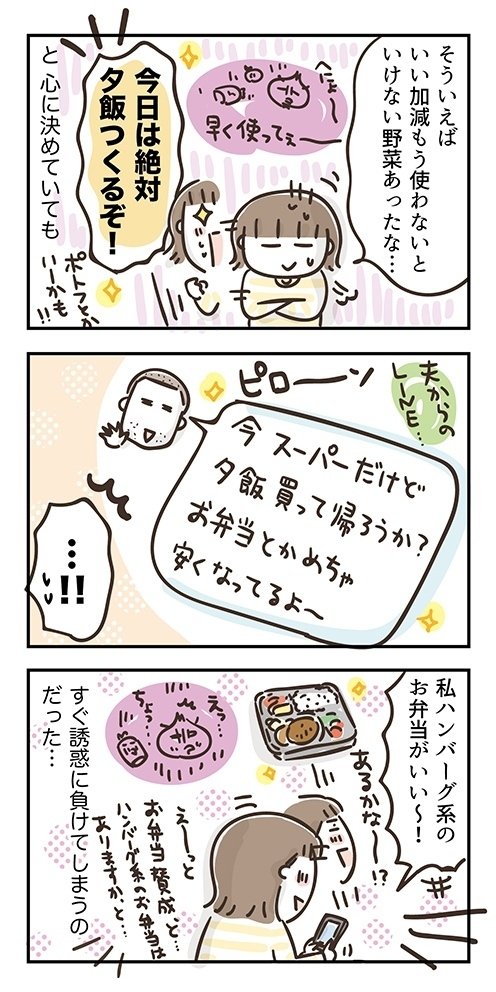 そういえば
いい加減もう使わないと
いけない野菜あったな…
へにょ〜
早く使ってぇ〜
今日は絶対
夕飯つくるぞ！
と 心に決めていても
ポトフとか
いーかも!!
夫からの
LINE…
ピローーン
今 スーパーだけど
夕飯 買って帰ろうか?
お弁当とかめちゃ
安くなってるよ〜
…!!
私ハンバーグ系の
お弁当がいい〜！
あるかな〜!?
えっ…
ちょっ…
えーっと
お弁当 賛成、と…
ハンバーグ系のお弁当は
ありますか、と…
すぐ誘惑に負けてしまうの
だった…